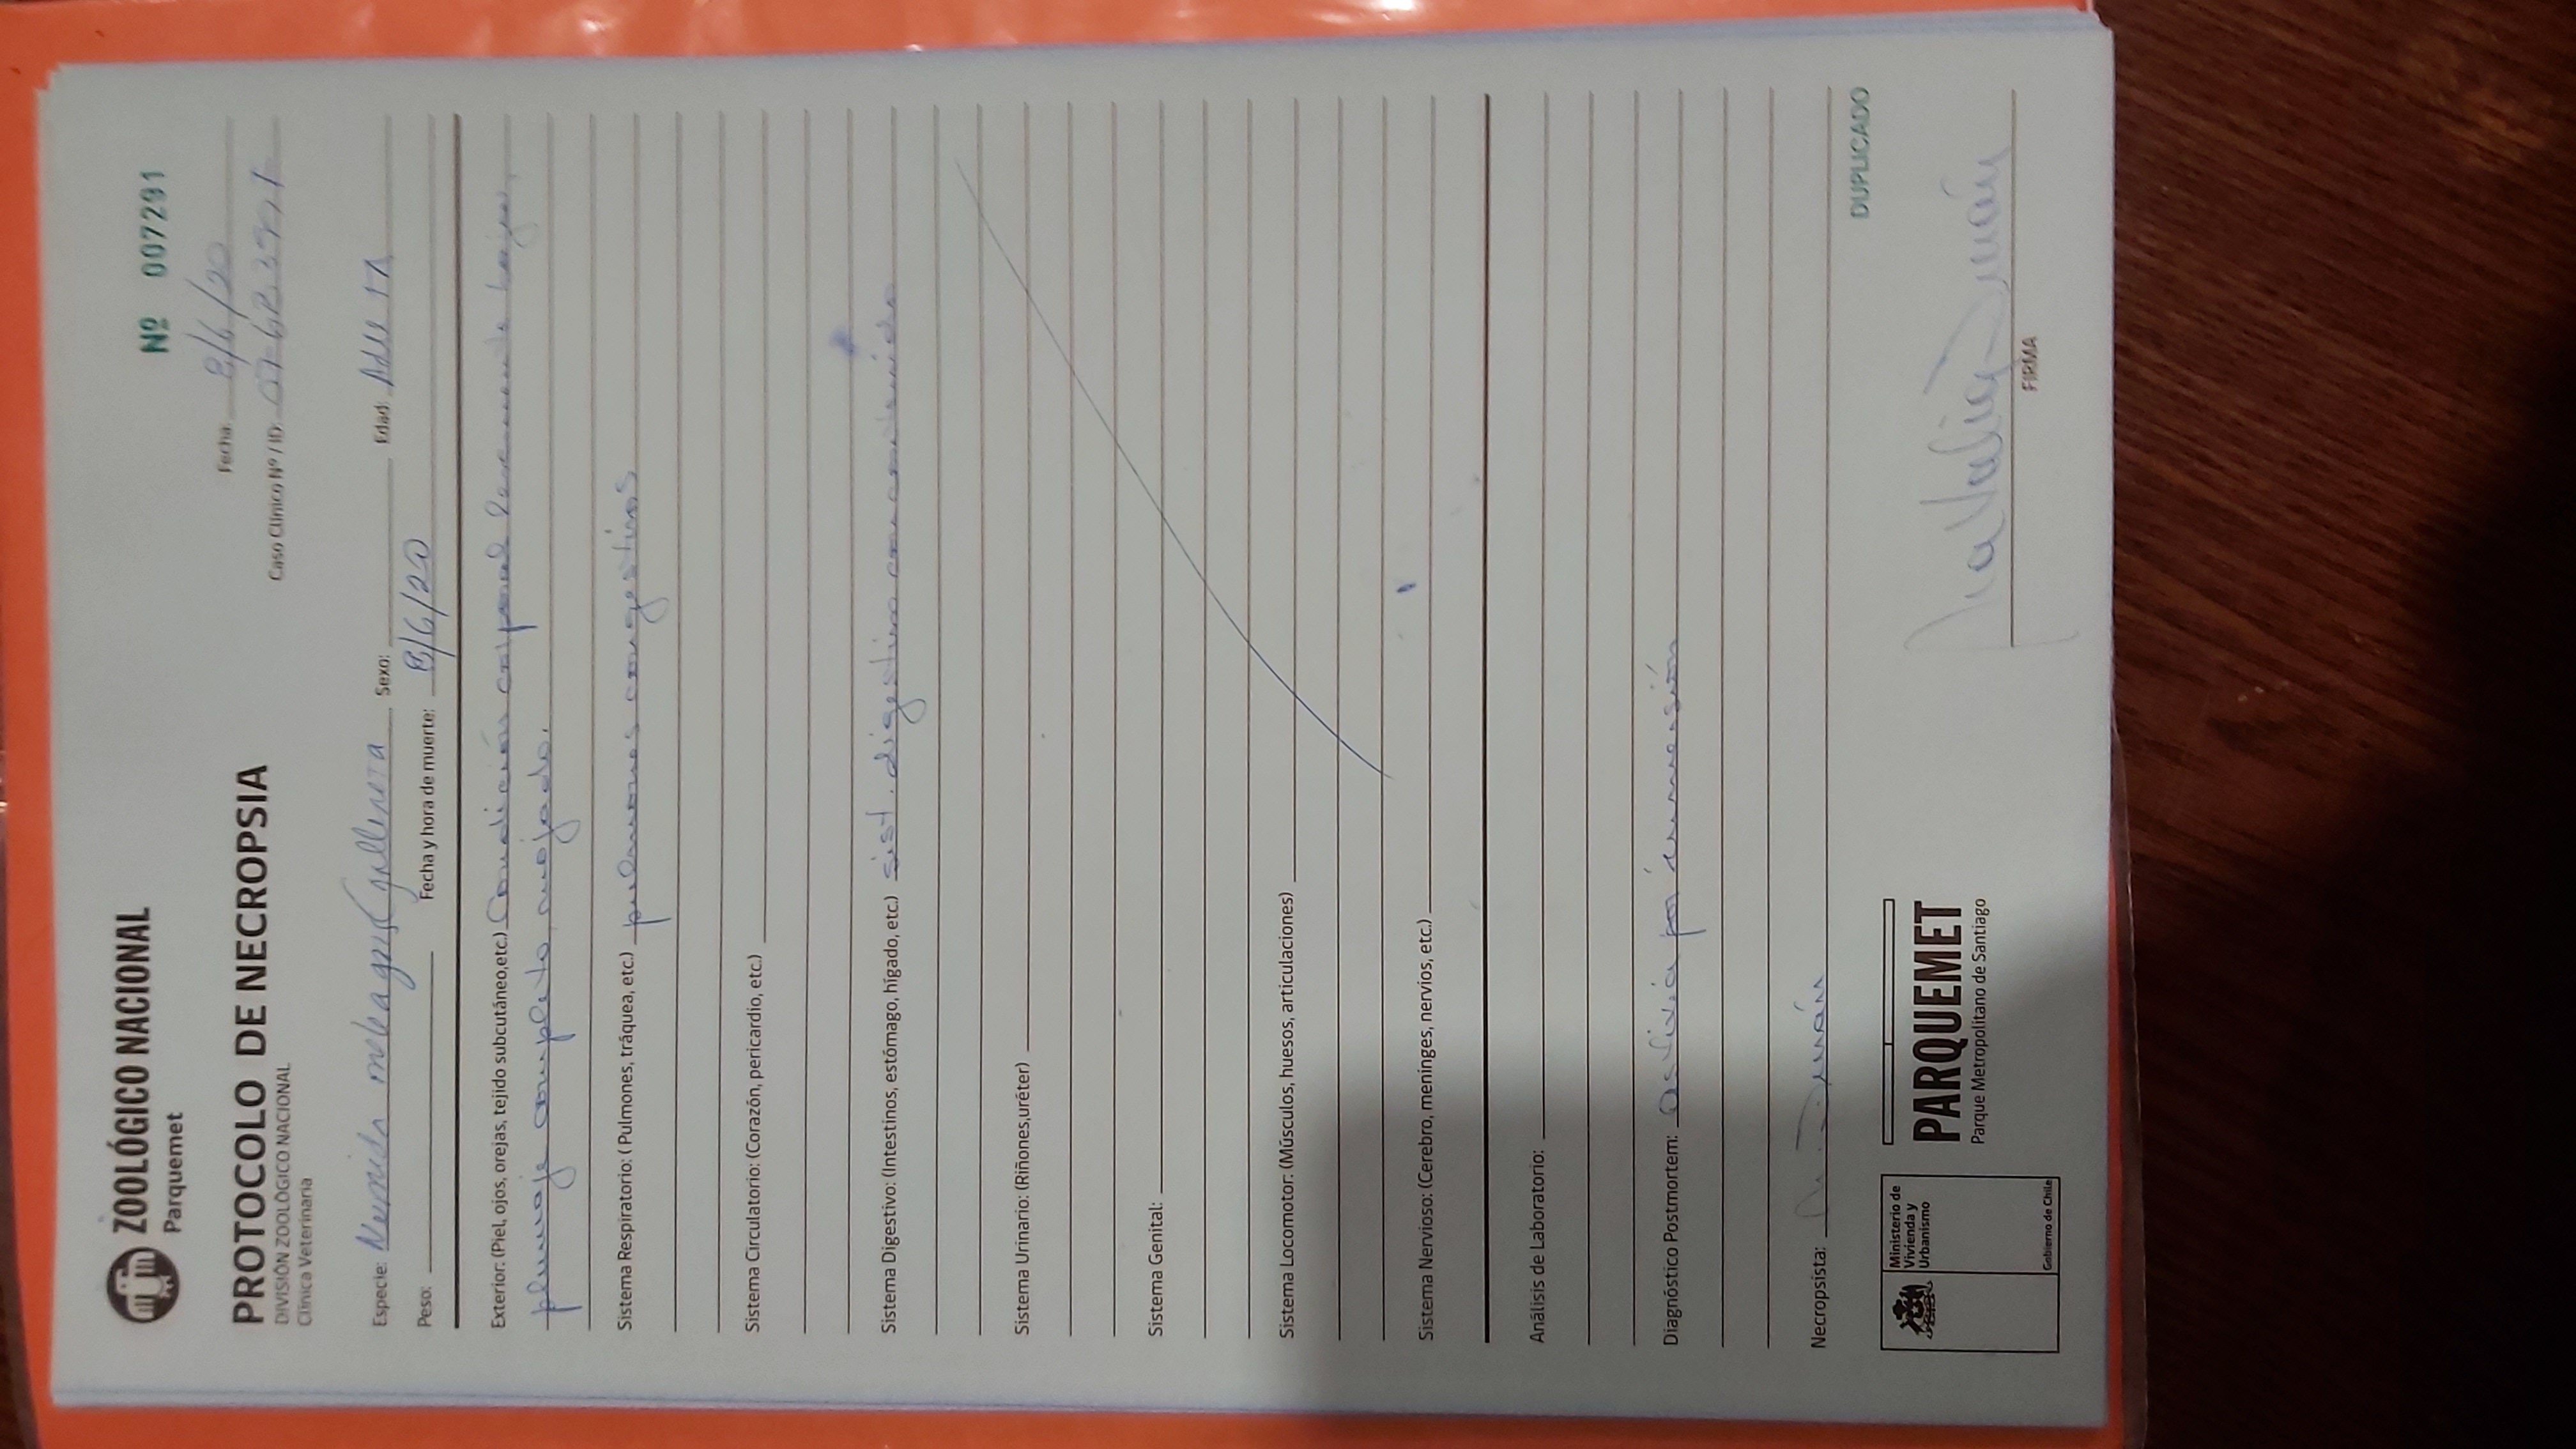 ZOOLÓGICO NACIONAL
Parquemet
Nº 007291
PROTOCOLO DE NECROPSIA
DIVISIÓN ZOOLÓGICO NACIONAL
Clínica Veterinaria
Fecha: 8/6/20
Caso Clínico Nº / ID:
Especie: Numida meleagris (gallineta Sexo: Edad: Adulta
Peso: Fecha y hora de muerte: 8/6/20
Exterior: (Piel, ojos, orejas, tejido subcutáneo,etc.) Condición corporal levemente baja,
plumaje completo, mojado.
Sistema Respiratorio: ( Pulmones, tráquea, etc.) pulmones congestivos
Sistema Circulatorio: (Corazón, pericardio, etc.)
Sistema Digestivo: (Intestinos, estómago, hígado, etc.) sist. digestivo con contenido
Sistema Urinario: (Riñones,uréter)
Sistema Genital:
Sistema Locomotor: (Músculos, huesos, articulaciones)
Sistema Nervioso: (Cerebro, meninges, nervios, etc.)
Análisis de Laboratorio:
Diagnóstico Postmortem: asfixia por inmersión
Necropsista:
DUPLICADO
Ministerio de
Vivienda y
Urbanismo
Gobierno de Chile
PARQUEMET
Parque Metropolitano de Santiago
Natalia
FIRMA